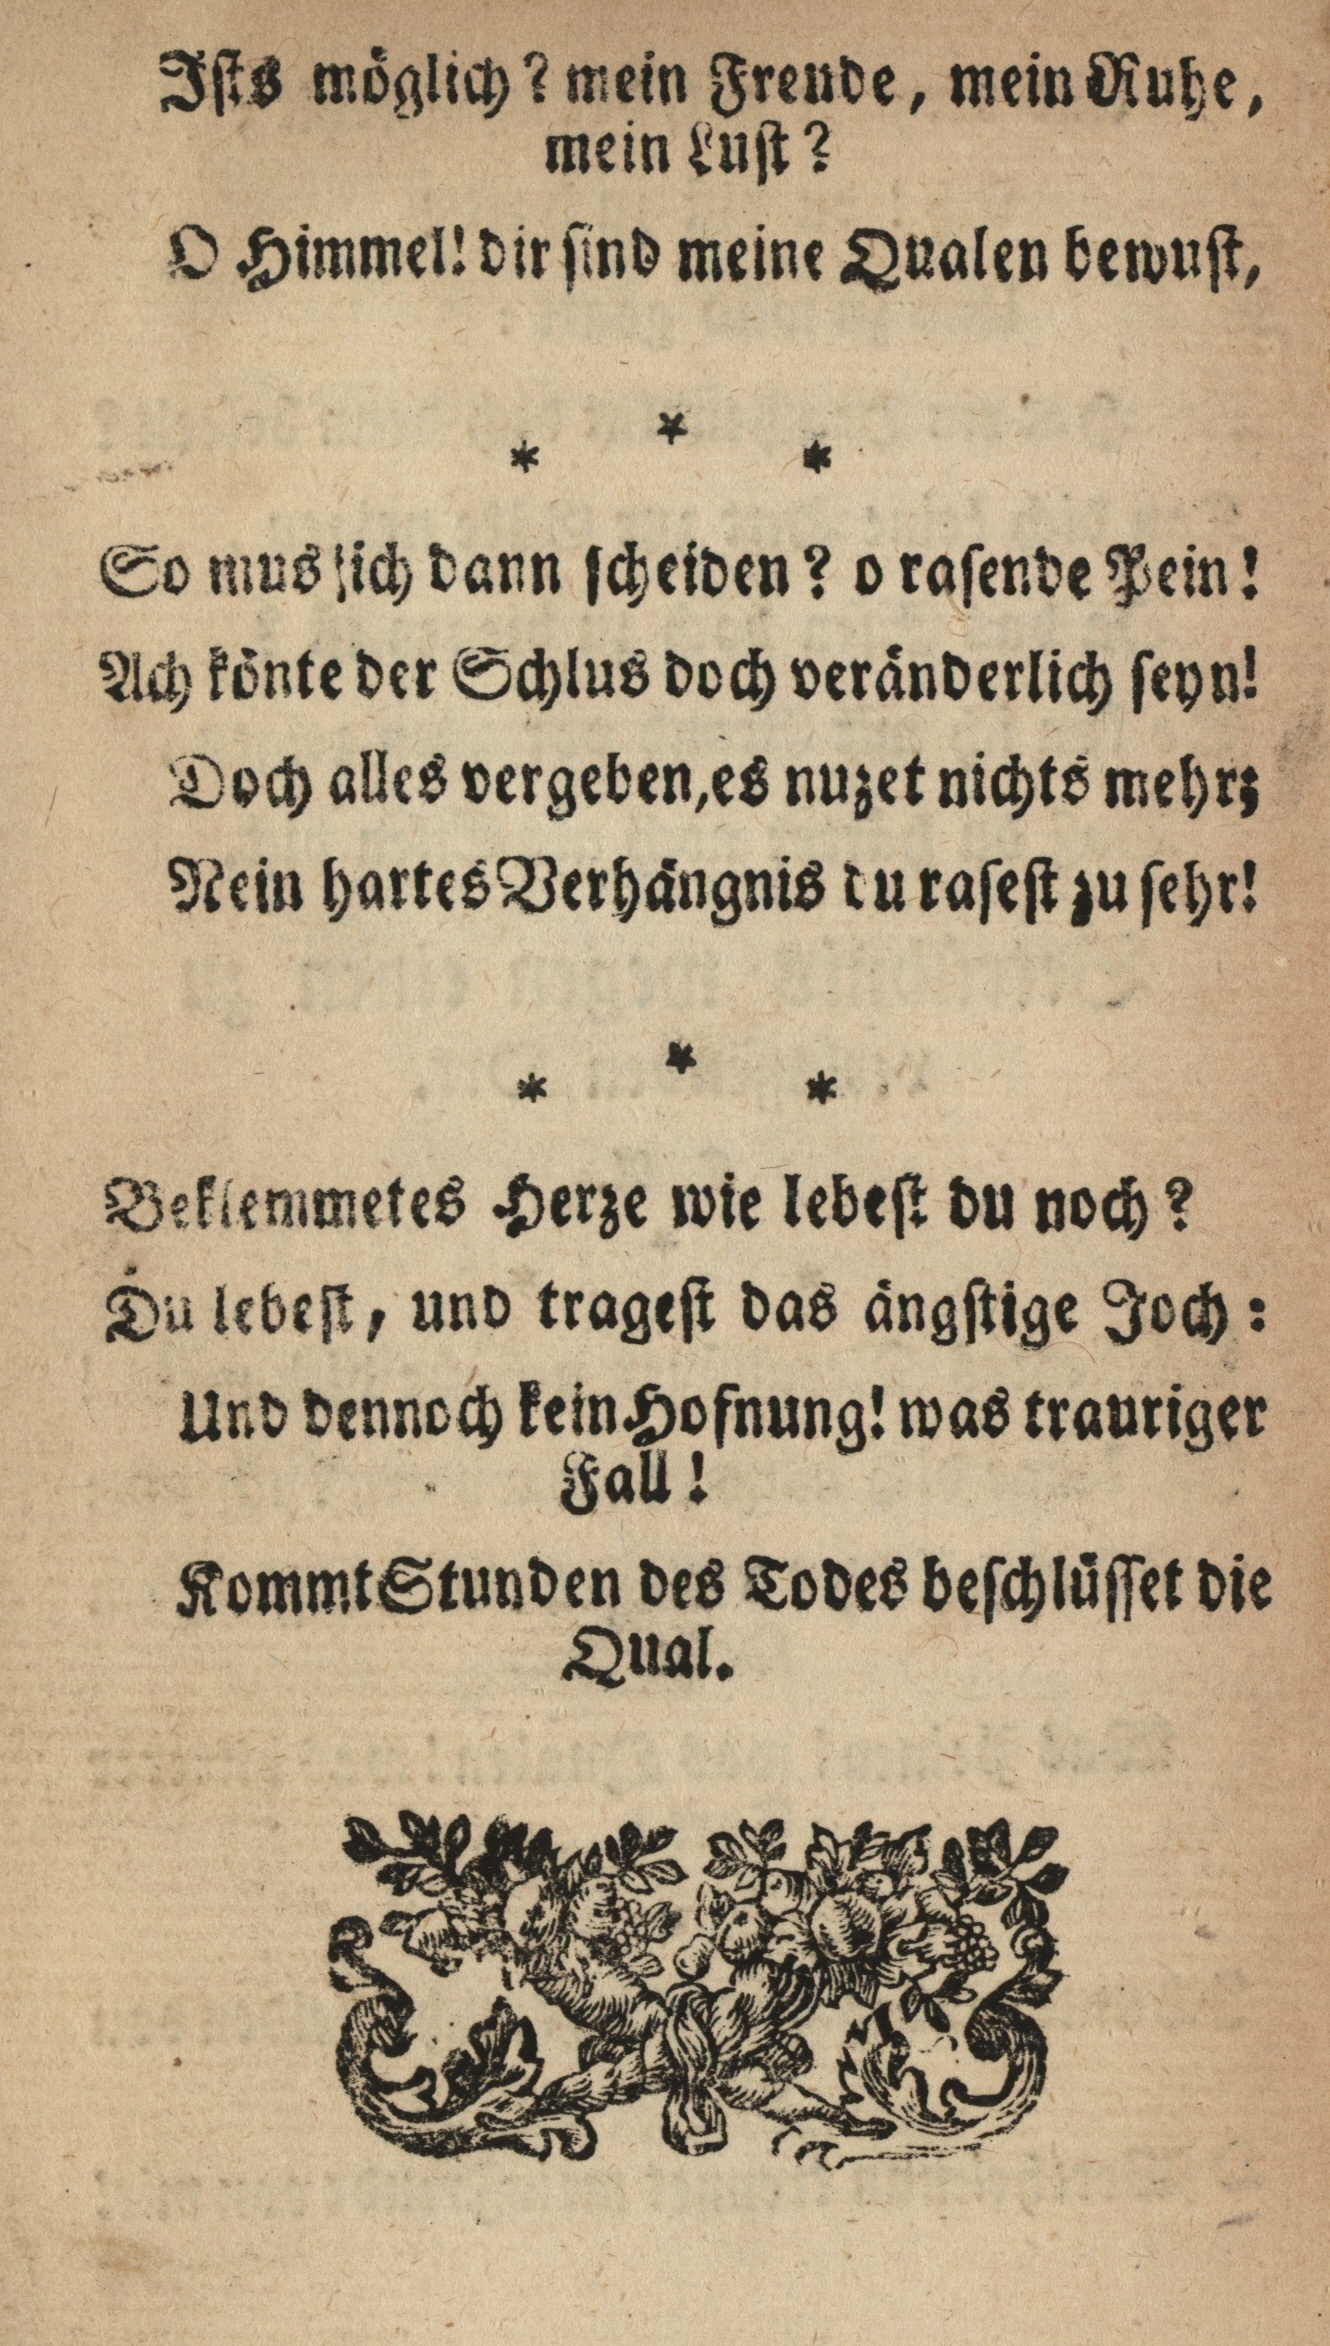 Ists möglich? mein Freude, mein Ruhe,
mein Lust?
O Himmel! dir sind meine Qualen bewust,
* * *
So mus ich dann scheiden? o rasende Pein!
Ach könte der Schlus doch veränderlich seyn!
Doch alles vergeben, es nuzet nichts mehr;
Nein hartes Verhängnis du rasest zu sehr!
* * *
Beklemmetes Herze wie lebest du noch?
Du lebest, und tragest das ängstige Joch:
Und dennoch kein Hofnung! was trauriger
Fall!
Kommt Stunden des Todes beschlüsset die
Qual.